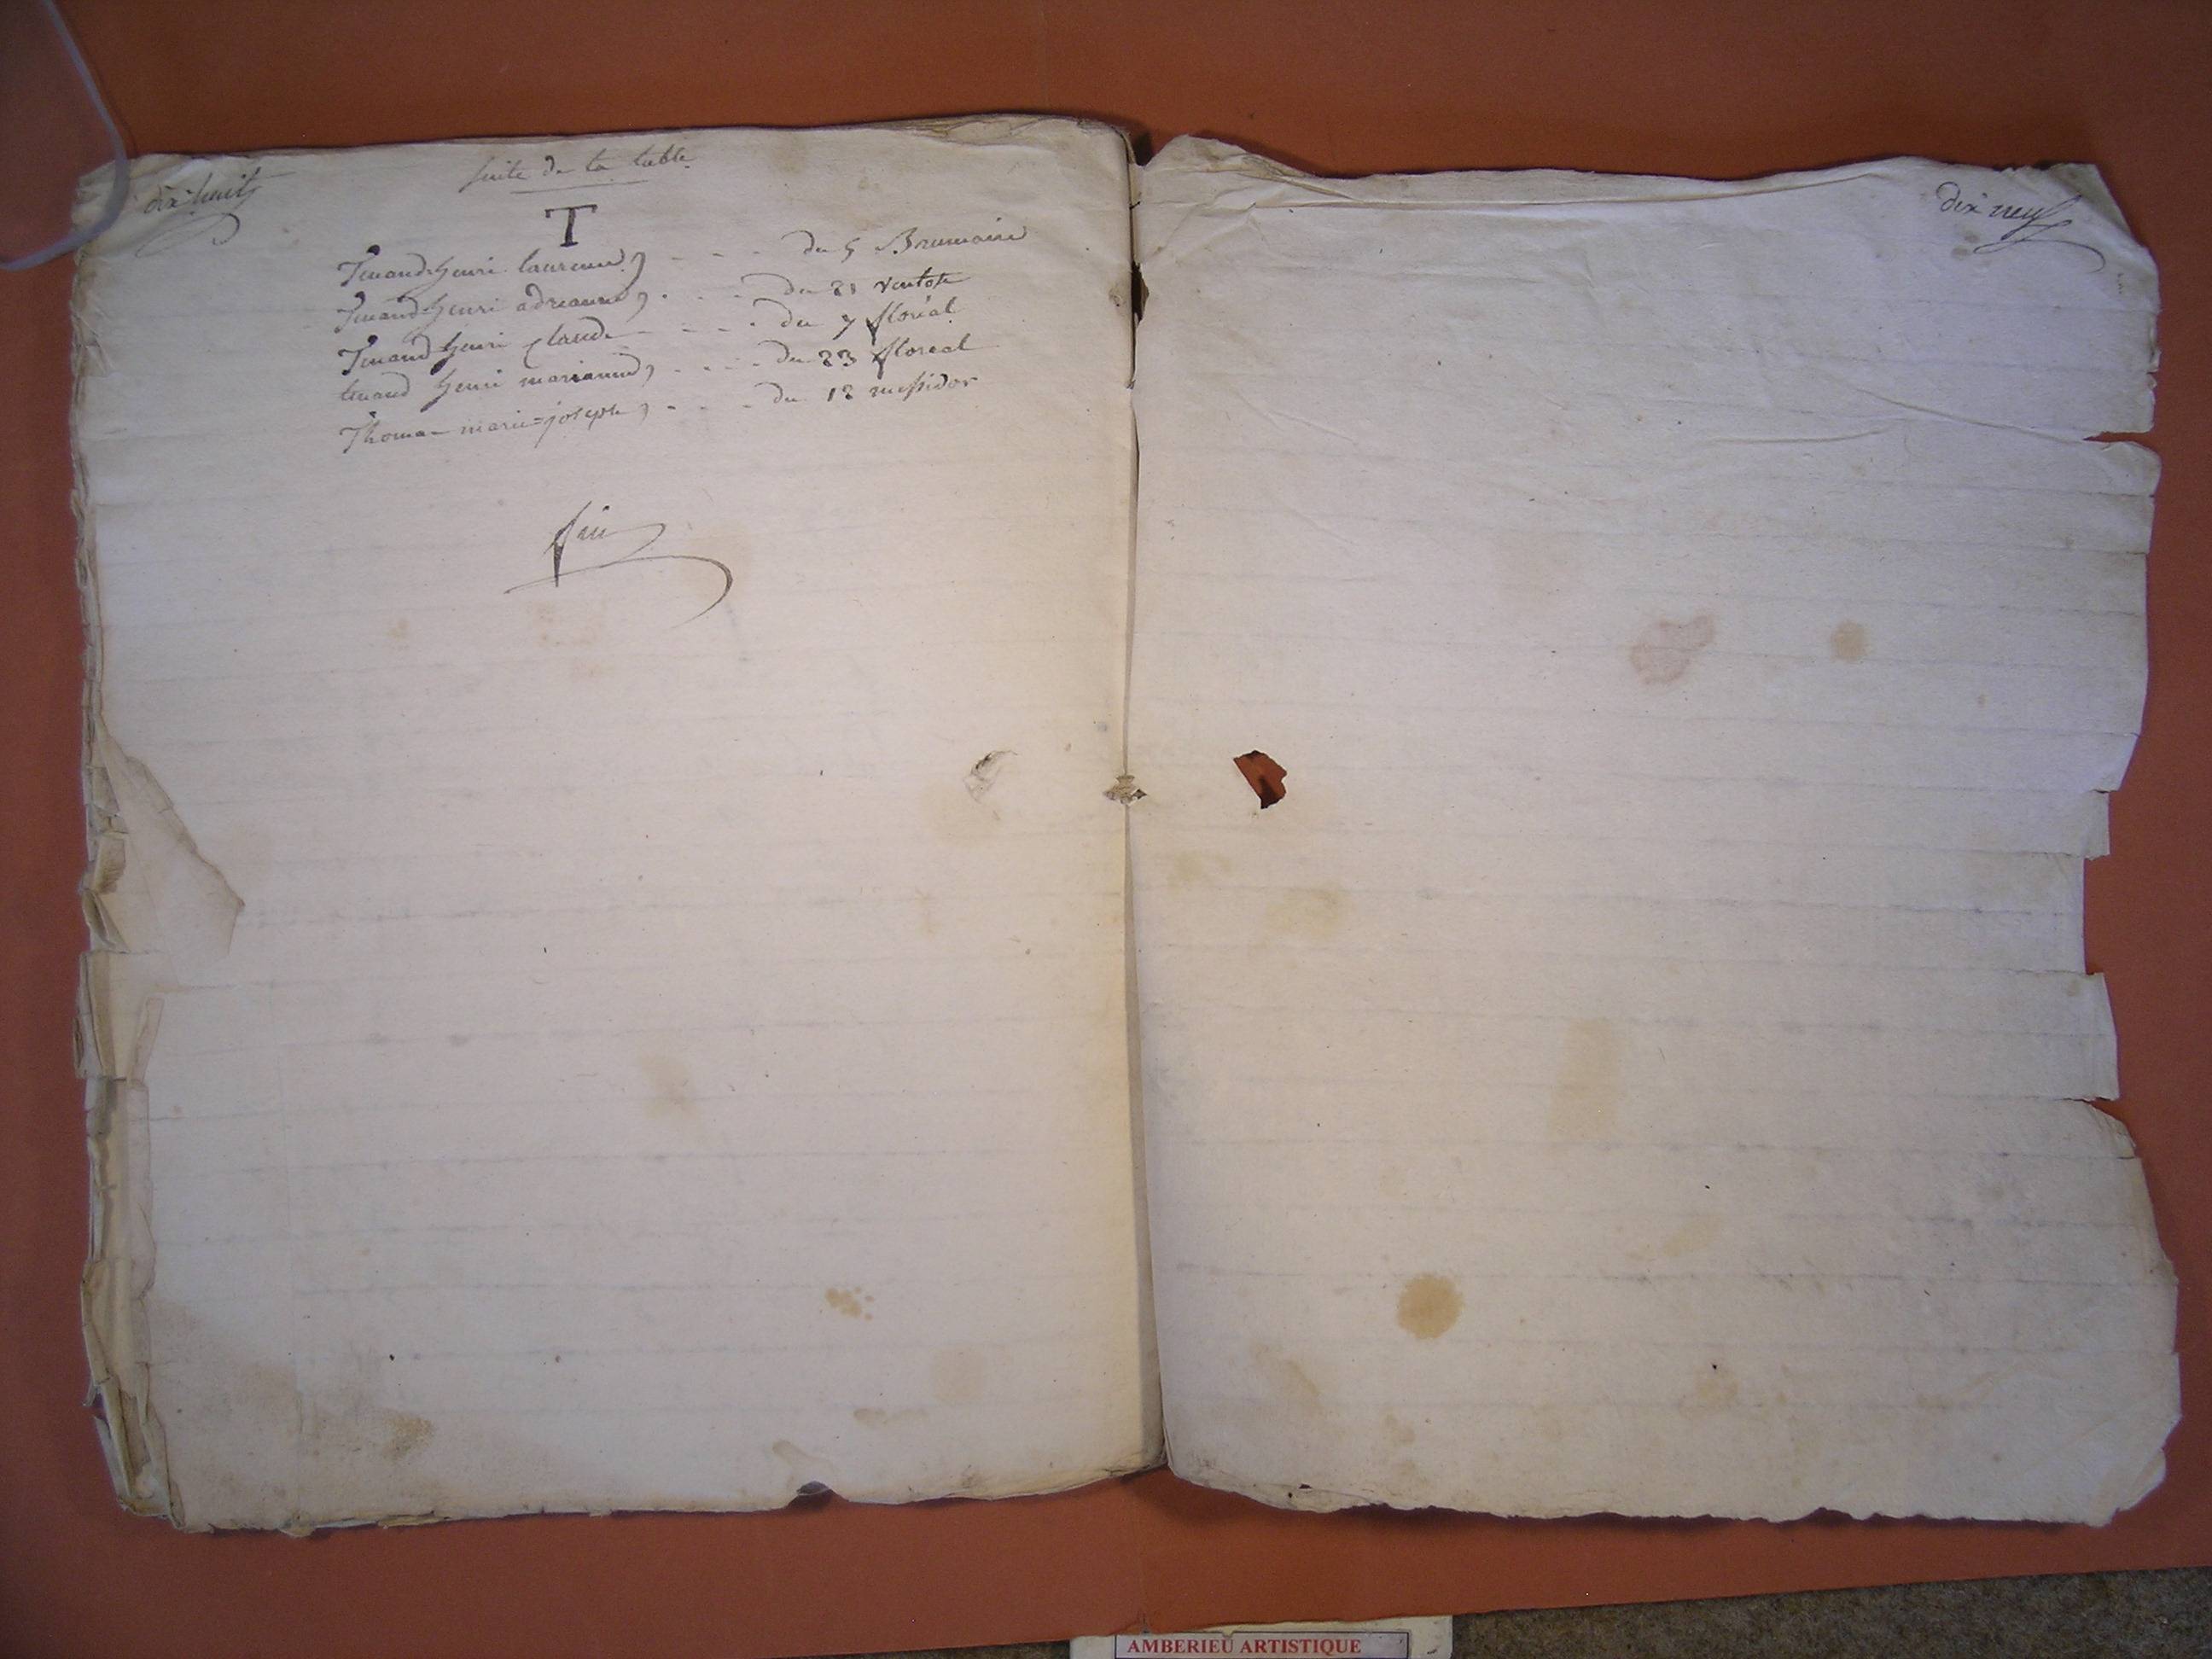 dix huit
suite de la table
T
Tenand henri laurence du 5 Brumaire
Tenand henri adrianne du 21 ventose
Tenand henri claude du 7 floréal
tenand henri marianne du 23 floreal
Thomas marie=joseph du 12 messidor
fin
dix neuf
AMBERIEU ARTISTIQUE